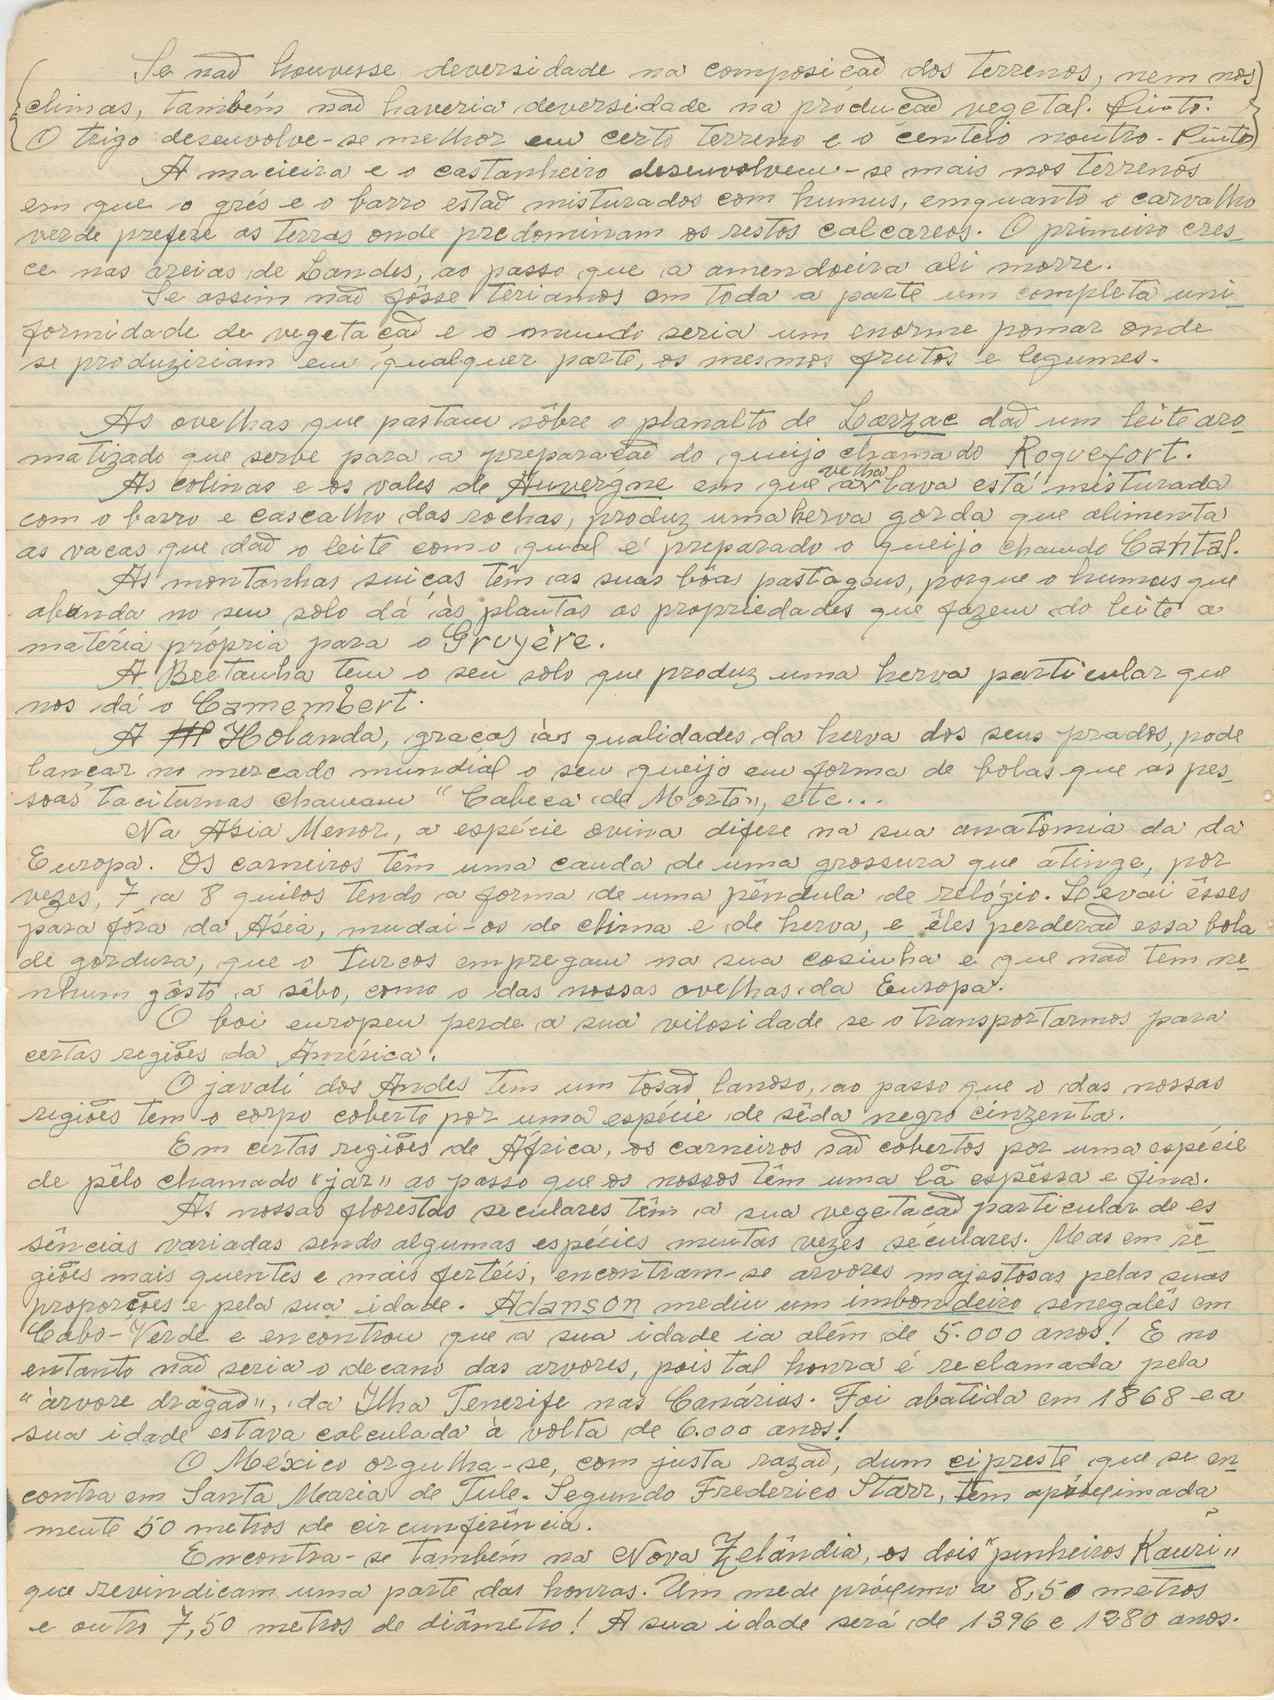 Se não houvesse deversidade na composição dos terrenos, nem nos
climas, também não haveria deversidade na produção vegetal.
O trigo desenvolve-se melhor em certo terreno e o centeio noutro -
A macieira e o castanheiro desenvolvem-se mais nos terrenos
em que o grés e o barro estão misturados com humus, emquanto o carvalho
verde prefere as terras onde predominam os restos calcareos. O primeiro cres_
ce nas areias de Landes, ao passo que a amendoeira ali morre.
Se assim não fôsse teriamos em toda a parte um completa uni_
formidade de vegetação e o mundo seria um enorme pomar onde
se produziriam em qualquer parte, os mesmos frutos e legumes.
As ovelhas que pastam sôbre o planalto de Larzac dão um leite aro_
matizado que serve para a preparação do queijo chamado Roquefort.
As colinas e os vales de Auvergne em que a velha lava está misturada
com o barro e cascalho das rochas, produz uma herva gorda que alimenta
as vacas que dão o leite com o qual é preparado o queijo chamdo Cantal.
As montanhas suiças têm as suas bôas pastagens, porque o humus que
abunda no seu solo dá às plantas as propriedades que fazem do leite a
matéria própria para o Gruyère.
A Bretanha tem o seu solo que produz uma herva particular que
nos dá o Camembert.
A Holanda, graças às qualidades da herva dos seus prados, pode
lançar no mercado mundial o seu queijo em forma de bolas que as pes_
soas taciturnas chamam "Cabeça de Morto", etc...
Na Ásia Menor, a espécie ovina difere na sua anatomia da da
Europa. Os carneiros têm uma cauda de uma grossura que atinge, por
vezes, 7 a 8 quilos tendo a forma de uma pêndula de relógio. Levai êsses
para fóra da Ásia, mudai-os de clima e de herva, e êles perderão essa bola
de gordura, que o Turcos empregam na sua cosinha e que não tem ne_
nhum gôsto a sêbo, como o das nossas ovelhas da Europa.
O boi europeu perde a sua vilosidade se o transportarmos para
certas regiões da América.
O javali dos Andes tem um tosão lanoso, ao passo que o das nossas
regiões tem o corpo coberto por uma espécie de sêda negro cinzenta.
Em certas regiões de Africa, os carneiros são cobertos por uma espécie
de pêlo chamado "jar" ao passo que os nossos têm uma lã espêssa e fina.
As nossas florestas seculares têm a sua vegetação particular de es
sências variadas sendo algumas espécies muitas vezes séculares. Mas em re_
giões mais quentes e mais fertéis, encontram-se arvores majestosas pelas suas
proporções e pela sua idade. Adanson mediu um imbondeiro senegalês em
Cabo-Verde e encontrou que a sua idade ia além de 5.000 anos! E no
entanto não seria o decano das arvores, pois tal honra é reclamada pela
"àrvore dragão", da Ilha Tenerife nas Canárias. Foi abatida em 1868 e a
sua idade estava calculada à volta de 6.000 anos!
O México orgulha-se, com justa razão, dum cipreste que se en_
contra em Santa Maria de Tule. Segundo Frederico Starr, tem apróximada
mente 50 metros de circunferência.
Encontra-se também na Nova Zelândia, os dois "pinheiros Kauri"
que revindicam uma parte das honras. Um mede próximo a 8,50 metros
e outro 7,50 metros de diâmetro! A sua idade será de 1396 e 1280 anos.